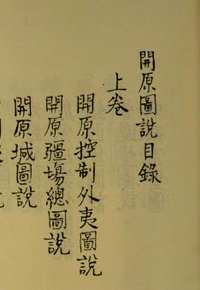 開原圖說目錄
上卷
開原控制外夷圖說
開原疆場總圖說
開原城圖說